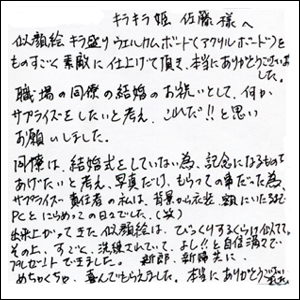 キラキラ姫 佐藤様へ
似顔絵キラ盛りウェルカムボード(アクリルボード)を
ものすごく素敵に仕上げて頂き、本当にありがとうございま
した。
職場の同僚の結婚のお祝いとして、何か
サプライズをしたいと考え、これだ!!と思い
お願いしました。
同僚は、結婚式をしていない為、記念になるものを
あげたいと考え、写真だけ、もらっての事だった為、
サプライズ責任者の私は、背景から衣装、額にいたるまで
PCとにらめっこの日々でした。(笑)
出来上がってきた似顔絵は、びっくりするくらい似てて。
その上、すごく、洗練されていて、よし!!と自信満々で
プレゼントできました。 新郎、新婦共に、
めちゃくちゃ、喜んでもらえました。本当にありがとうござい
ました。